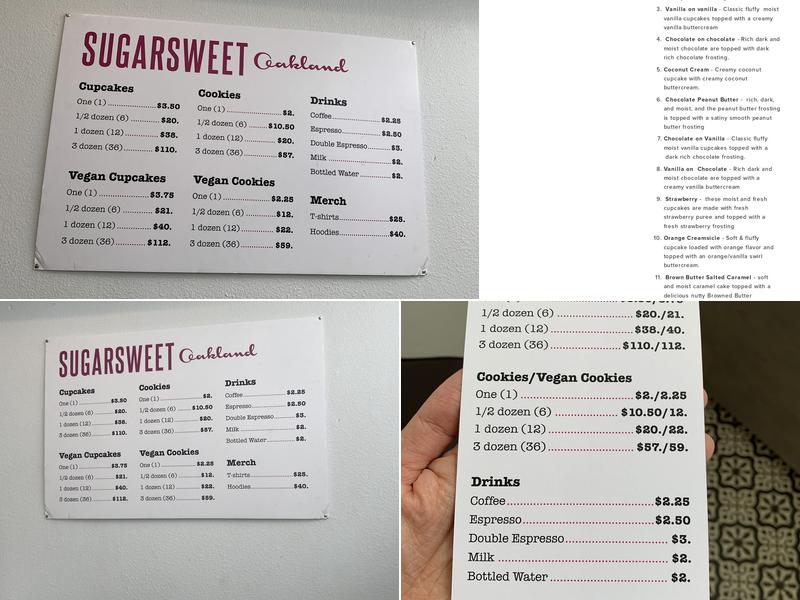 SUGARSWEET Oakland
Cupcakes
One (1) $3.50
1/2 dozen (6) $20.
1 dozen (12) $38.
3 dozen (36) $110.
Vegan Cupcakes
One (1) $3.75
1/2 dozen (6) $21.
1 dozen (12) $40.
3 dozen (36) $112.
Cookies
One (1) $2.
1/2 dozen (6) $10.50
1 dozen (12) $20.
3 dozen (36) $57.
Vegan Cookies
One (1) $2.25
1/2 dozen (6) $12.
1 dozen (12) $22.
3 dozen (36) $59.
Drinks
Coffee $2.25
Espresso $2.50
Double Espresso $3.
Milk $2.
Bottled Water $2.
Merch
T-shirts $25.
Hoodies $40.
3. Vanilla on vanilla - Classic fluffy moist
vanilla cupcakes topped with a creamy
vanilla buttercream
4. Chocolate on chocolate - Rich dark and
moist chocolate are topped with dark
rich chocolate frosting.
5. Coconut Cream - Creamy coconut
cupcake with creamy coconut
buttercream.
6. Chocolate Peanut Butter - rich, dark,
and moist, and the peanut butter frosting
is topped with a satiny smooth peanut
butter frosting
7. Chocolate on Vanilla - Classic fluffy
moist vanilla cupcakes topped with a
dark rich chocolate frosting.
8. Vanilla on Chocolate - Rich dark and
moist chocolate are topped with a
creamy vanilla buttercream
9. Strawberry - these moist and fresh
cupcakes are made with fresh
strawberry puree and topped with a
fresh strawberry frosting
10. Orange Creamsicle - Soft & fluffy
cupcake loaded with orange flavor and
topped with an orange/vanilla swirl
buttercream.
11. Brown Butter Salted Caramel - soft
and moist caramel cake topped with a
delicious nutty Browned Butter
SUGARSWEET Oakland
Cupcakes
One (1) $3.50
1/2 dozen (6) $20.
1 dozen (12) $38.
3 dozen (36) $110.
Vegan Cupcakes
One (1) $3.75
1/2 dozen (6) $21.
1 dozen (12) $40.
3 dozen (36) $112.
Cookies
One (1) $2.
1/2 dozen (6) $10.50
1 dozen (12) $20.
3 dozen (36) $57.
Vegan Cookies
One (1) $2.25
1/2 dozen (6) $12.
1 dozen (12) $22.
3 dozen (36) $59.
Drinks
Coffee $2.25
Espresso $2.50
Double Espresso $3.
Milk $2.
Bottled Water $2.
Merch
T-shirts $25.
Hoodies $40.
1/2 dozen (6) $20./21.
1 dozen (12) $38./40.
3 dozen (36) $110./112.
Cookies/Vegan Cookies
One (1) $2./2.25
1/2 dozen (6) $10.50/12.
1 dozen (12) $20./22.
3 dozen (36) $57./59.
Drinks
Coffee $2.25
Espresso $2.50
Double Espresso $3.
Milk $2.
Bottled Water $2.